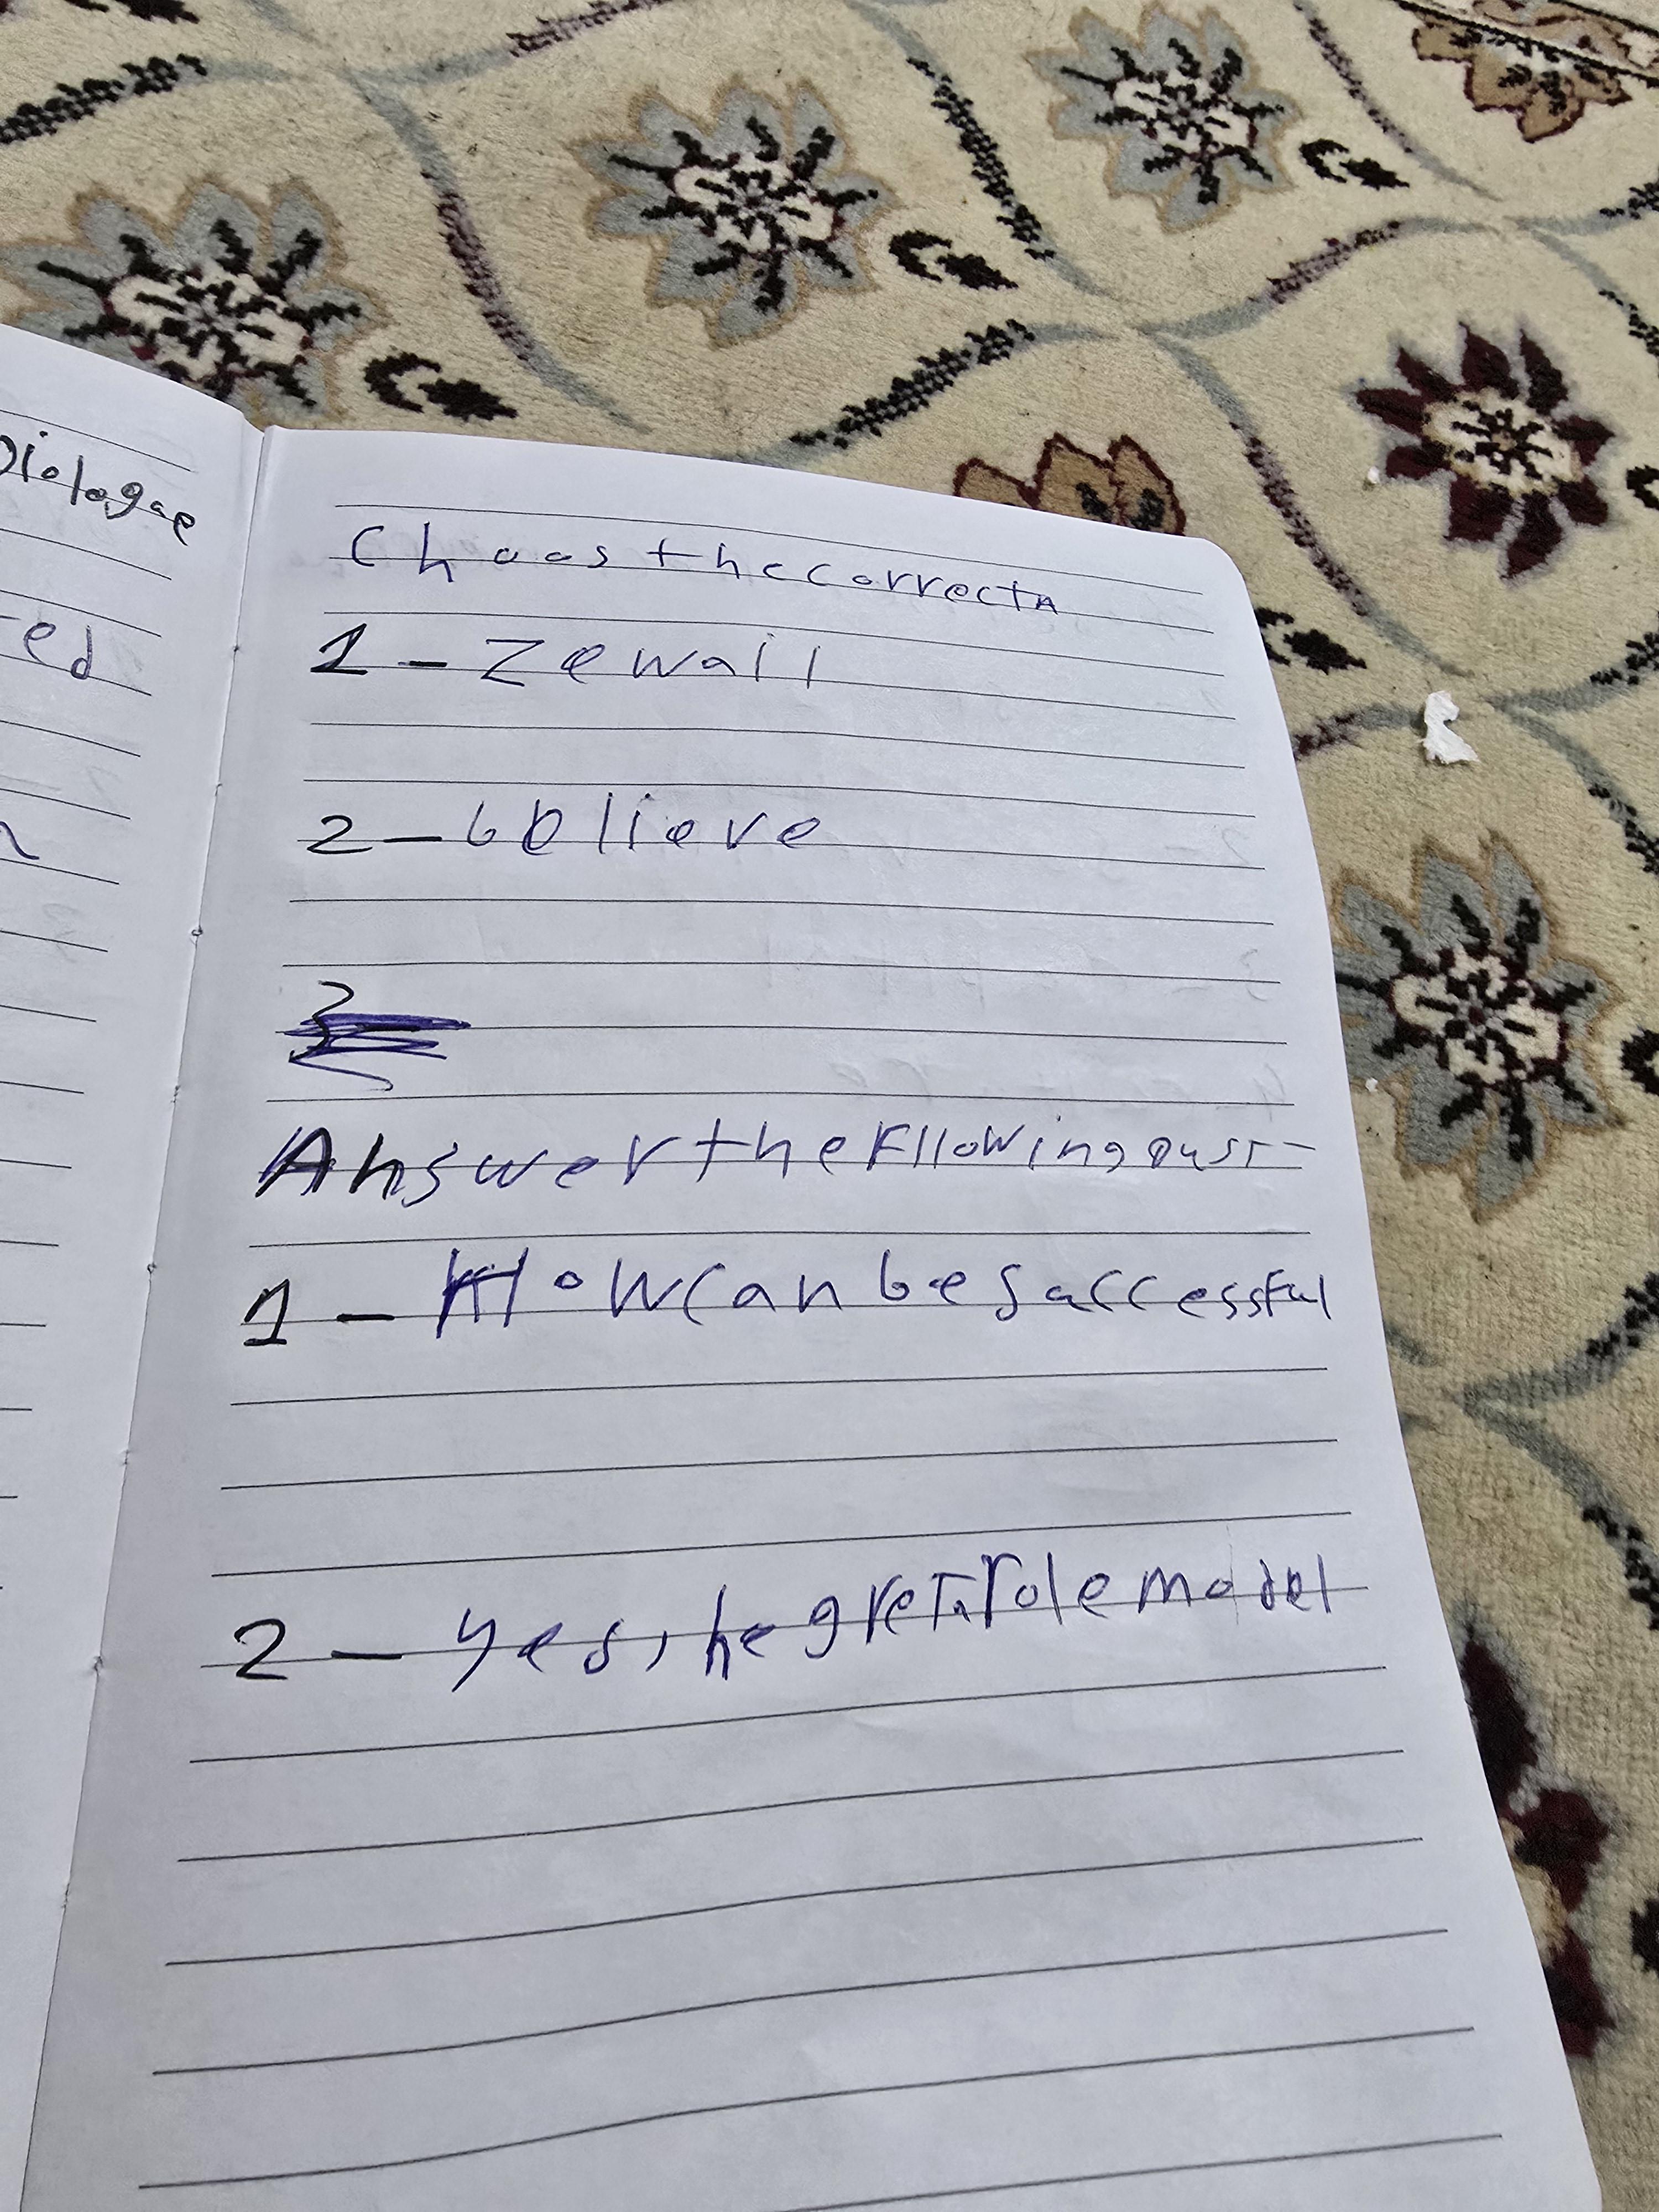 Diologae
ed
Choos the correct A
1 - Zewail
2 - believe
3 -
Answer the Fllowing Qust -
1 - How can be saccessful
2 - yes, he gret a role model